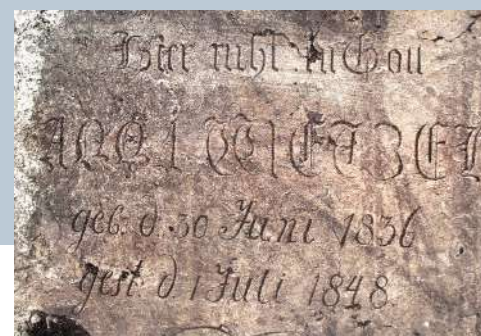 Hier ruht in Gott
ANNA WETZEL
geb: d. 30 Juni 1836
gest: d. 1 Juli 1848.